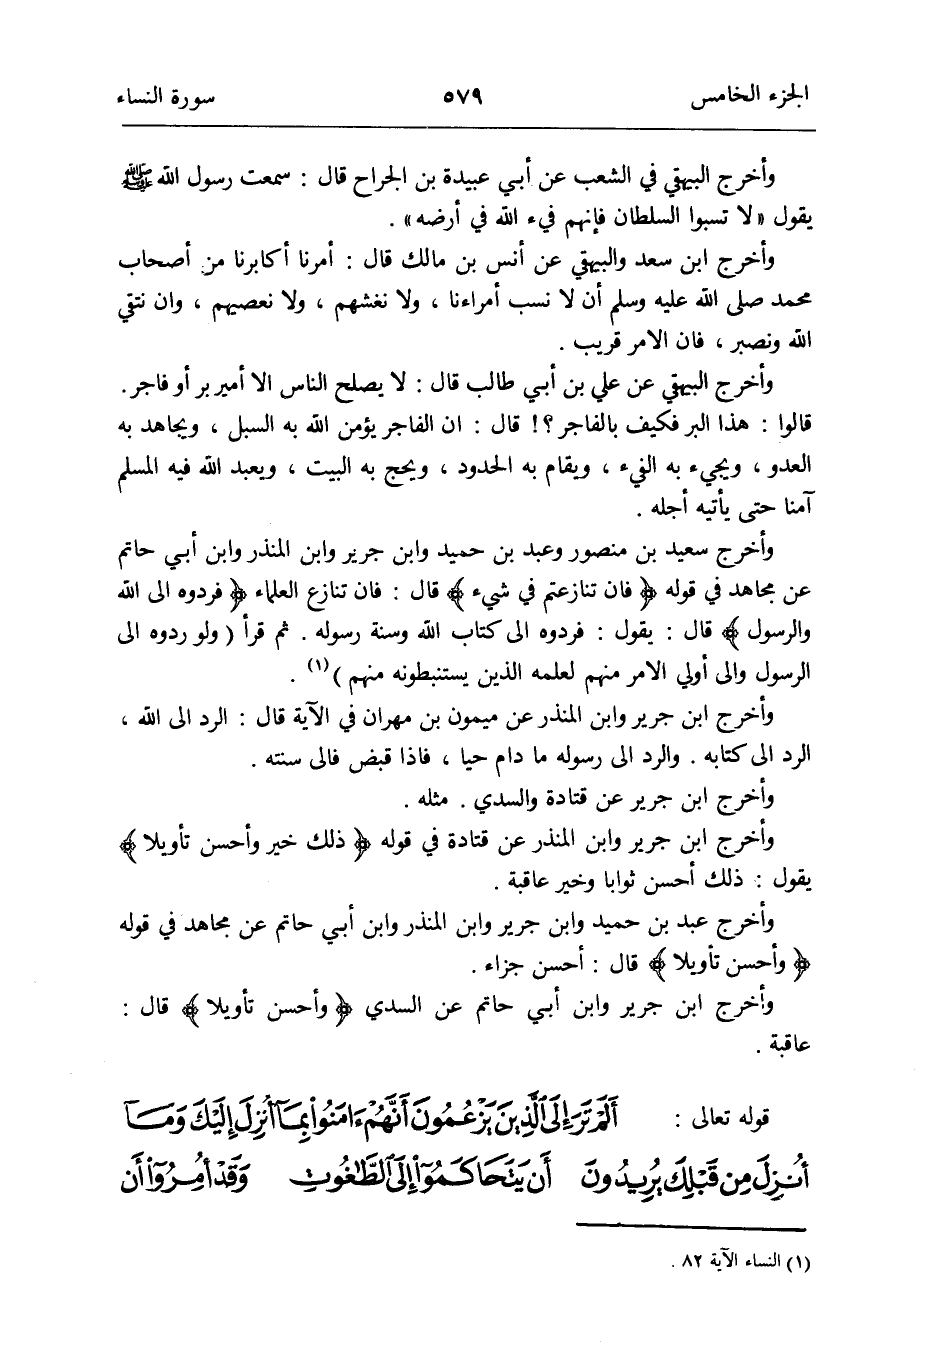 الجزء الخامس ٥٧٩ سورة النساء
وأخرج البيهقي في الشعب عن أبي عبيدة بن الجراح قال : سمعت رسول الله ﷺ
يقول «لا تسبوا السلطان فإنهم فيء الله في أرضه» .
وأخرج ابن سعد والبيهقي عن أنس بن مالك قال : أمرنا أكابرنا من أصحاب
محمد صلى الله عليه وسلم أن لا نسب أمراءنا ، ولا نغشهم ، ولا نعصيهم ، وان نتقي
الله ونصبر ، فان الامر قريب .
وأخرج البيهقي عن علي بن أبي طالب قال : لا يصلح الناس الا أمير بر أو فاجر .
قالوا : هذا البر فكيف بالفاجر ؟! قال : ان الفاجر يؤمن الله به السبل ، ويجاهد به
العدو ، ويجيء به الفيء ، ويقام به الحدود ، ويحج به البيت ، ويعبد الله فيه المسلم
آمنا حتى يأتيه أجله .
وأخرج سعيد بن منصور وعبد بن حميد وابن جرير وابن المنذر وابن أبي حاتم
عن مجاهد في قوله ﴿ فان تنازعتم في شيء ﴾ قال : فان تنازع العلماء ﴿ فردوه الى الله
والرسول ﴾ قال : يقول : فردوه الى كتاب الله وسنة رسوله . ثم قرأ ( ولو ردوه الى
الرسول والى أولي الامر منهم لعلمه الذين يستنبطونه منهم )(١) .
وأخرج ابن جرير وابن المنذر عن ميمون بن مهران في الآية قال : الرد الى الله ،
الرد الى كتابه . والرد الى رسوله ما دام حيا ، فاذا قبض فالى سنته .
وأخرج ابن جرير عن قتادة والسدي . مثله .
وأخرج ابن جرير وابن المنذر عن قتادة في قوله ﴿ ذلك خير وأحسن تأويلا ﴾
يقول : ذلك أحسن ثوابا وخير عاقبة .
وأخرج عبد بن حميد وابن جرير وابن المنذر وابن أبي حاتم عن مجاهد في قوله
﴿ وأحسن تأويلا ﴾ قال : أحسن جزاء .
وأخرج ابن جرير وابن أبي حاتم عن السدي ﴿ وأحسن تأويلا ﴾ قال :
عاقبة .
قوله تعالى : أَلَمْ تَرَ إِلَى ٱلَّذِينَ يَزْعُمُونَ أَنَّهُمْ ءَامَنُواْ بِمَآ أُنزِلَ إِلَيْكَ وَمَآ
أُنزِلَ مِن قَبْلِكَ يُرِيدُونَ أَن يَتَحَاكَمُوٓاْ إِلَى ٱلطَّٰغُوتِ وَقَدْ أُمِرُوٓاْ أَن
(١) النساء الآية ٨٢ .